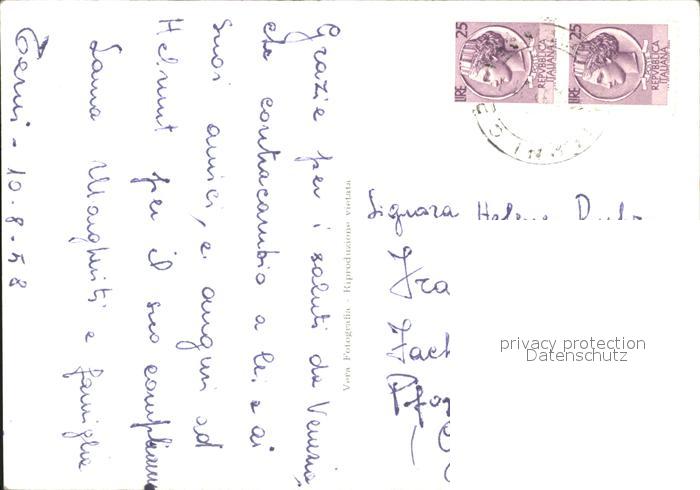 Grazie per i saluti da Venezia,
che contraccambio a lei e ai
suoi amici, e auguri ad
Helmut per il suo compleanno
Lama Margheriti e famiglia
Terni - 10-8-58
Vera Fotografia - Riproduzione vietata
25
LIRE
REPVBBLICA
ITALIANA
25
LIRE
REPVBBLICA
ITALIANA
Signora
privacy protection
Datenschutz